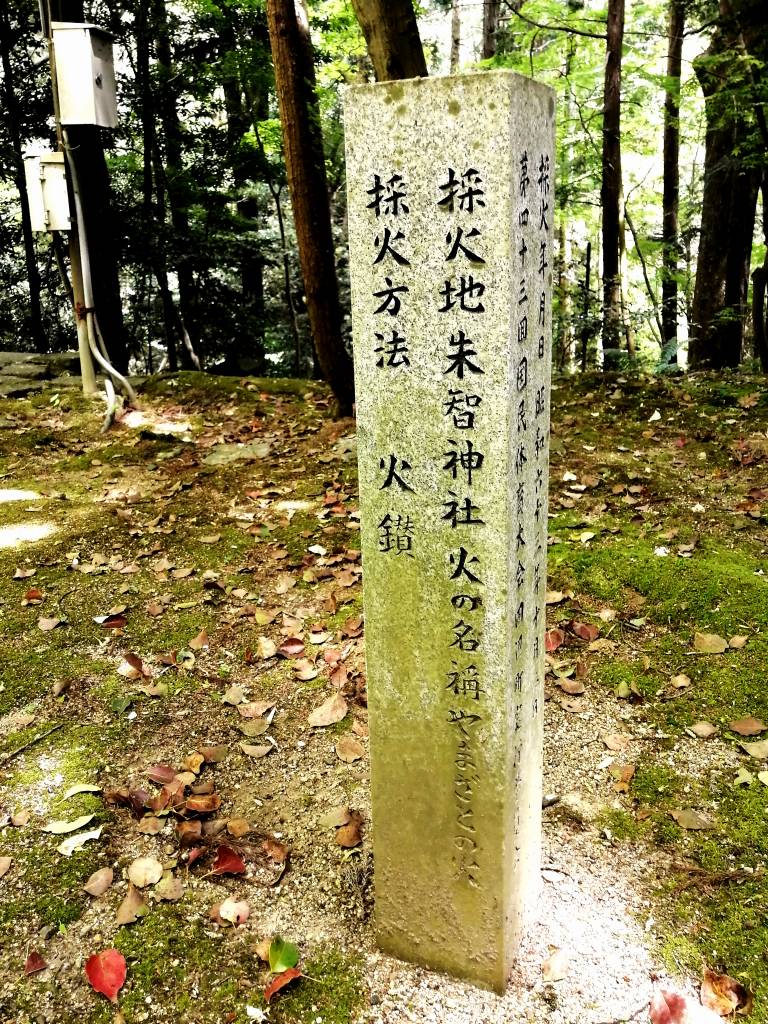 採火地朱智神社火の名称やまざとの火
採火方法 火鑚
採火年月日 昭和六十三年十月 日
第四十三回国民体育大会田辺町